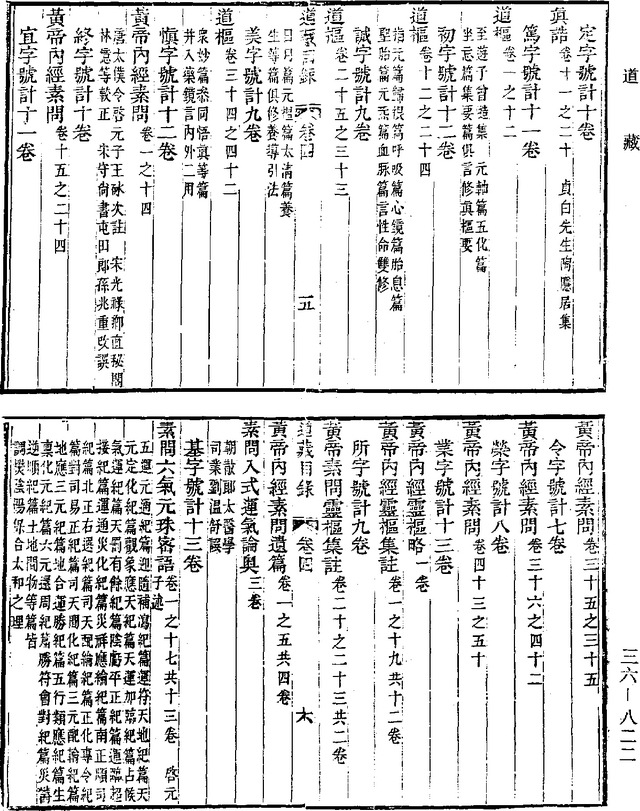 道藏
定字號計十卷
真誥 卷十一之二十 貞白先生陶隱居集
篤字號計十一卷
道樞 卷一之十二
至遊子曾造集 元軸篇五化篇
坐忘篇集要篇俱言修真樞要
初字號計十二卷
道樞 卷十二之二十四
指元篇歸根篇呼吸篇心鏡篇胎息篇
聖胎篇元珠篇血脈篇言性命雙修
誠字號計九卷
道樞 卷二十五之三十三
道藏目錄 卷四 五
日月篇元樞篇太清篇養
生等篇俱修養導引法
美字號計九卷
道樞 卷三十四之四十二
衆妙篇悉同悟真等篇
并入藥鏡言內外二用
慎字號計十二卷
黃帝內經素問 卷一之十四
唐太僕令啓元子王冰次註 宋光祿卿直秘閣
林憶等較正 宋守尚書屯田郎孫兆重改誤
終字號計十卷
黃帝內經素問 卷十五之二十四
宜字號計十一卷
黃帝內經素問 卷二十五之三十五
令字號計七卷
黃帝內經素問 卷三十六之四十二
榮字號計八卷
黃帝內經素問 卷四十三之五十
業字號計十三卷
黃帝內經靈樞略 一卷
黃帝內經靈樞集註 卷一之十九共十二卷
所字號計九卷
黃帝素問靈樞集註 卷二十之二十三共二卷
道藏目錄 卷四 六
黃帝內經素問遺篇 卷一之五共四卷
素問入式運氣論奧 三卷
朝散郎太醫學
司業劉溫舒譔
基字號計十三卷
素問六氣元珠密語 卷一之十七共十三卷 啓元子述
五運元通紀篇迎隨補瀉紀篇運符天地紀篇天
元定化紀篇觀象應天紀篇天運加臨紀篇占候
氣運紀篇天罰有餘紀篇陰虧平正紀篇通臨超
接紀篇運通災化紀篇災祥應繪紀篇南正順司
紀篇北正右遷紀篇司天配輪紀篇正化專令紀
篇對司易正紀篇司天間化紀篇三元配輪紀篇
地應三元紀篇地合運勝紀篇五行類應紀篇生
稟化元紀篇六元還周紀篇勝符會對紀篇災變
逆順紀篇土地間物等篇皆
調變陰陽保合太和之理
三六—八二二